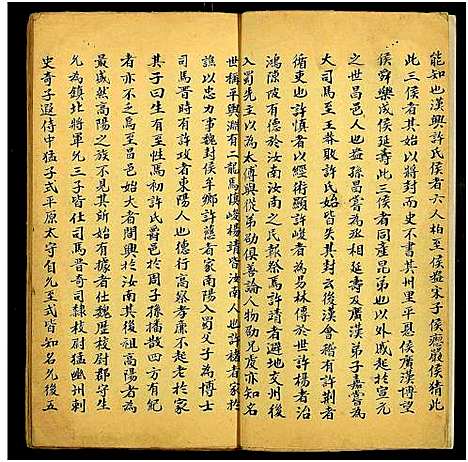 能知也漢興許氏侯者六人柏至侯盎宋子侯瘛嚴侯猜此
此三侯者其始以將封而史不書其州里平恩侯廣漢博望
侯舜樂成侯延壽此三侯者同產昆弟也以外戚起於宣元
之世昌邑人也盎孫昌嘗為丞相延壽及廣漢弟子嘉嘗為
大司馬至王莽敗許氏始皆失其封云後漢會稽有許荊者
循吏也許慎者以經術顯許峻者為易林傳於世許楊者治
鴻隙陂有德於汝南汝南之民報祭焉許靖者避地交州後
入蜀先主以為太傅與從弟劭俱善論人物劭兄虔亦知名
世稱平輿淵有二龍焉慎峻楊靖皆汝南人也許褚者家於
譙以忠力事魏封侯牟鄉許慈者家南陽入蜀父子為博士
司馬晉時有許孜者東陽人也德行高察孝廉不起老於家
其子曰生有至性焉初許氏爵邑於周子孫播散四方有紀
者亦不乏焉至昌邑始大者聞興於汝南其後祖高陽者為
最盛然高陽之族不見其所始有據者仕魏歷校尉郡守生
允為鎮北將軍允三子皆仕司馬晉奇司隸校尉猛幽州刺
史奇子遐侍中猛子式平原太守自允至式皆知名允後五